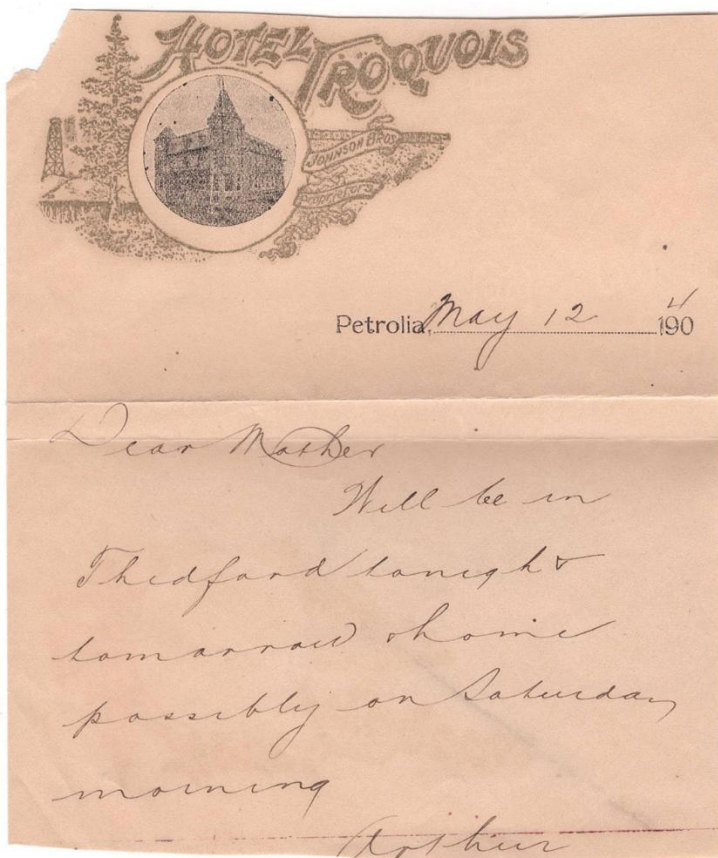 HOTEL IROQUOIS
JOHNSON BROS
Proprietors
Petrolia, May 12 1904
Dear Mother
Will be in
Thedford tonight &
tomorrow & home
possibly on Saturday
morning
Arthur